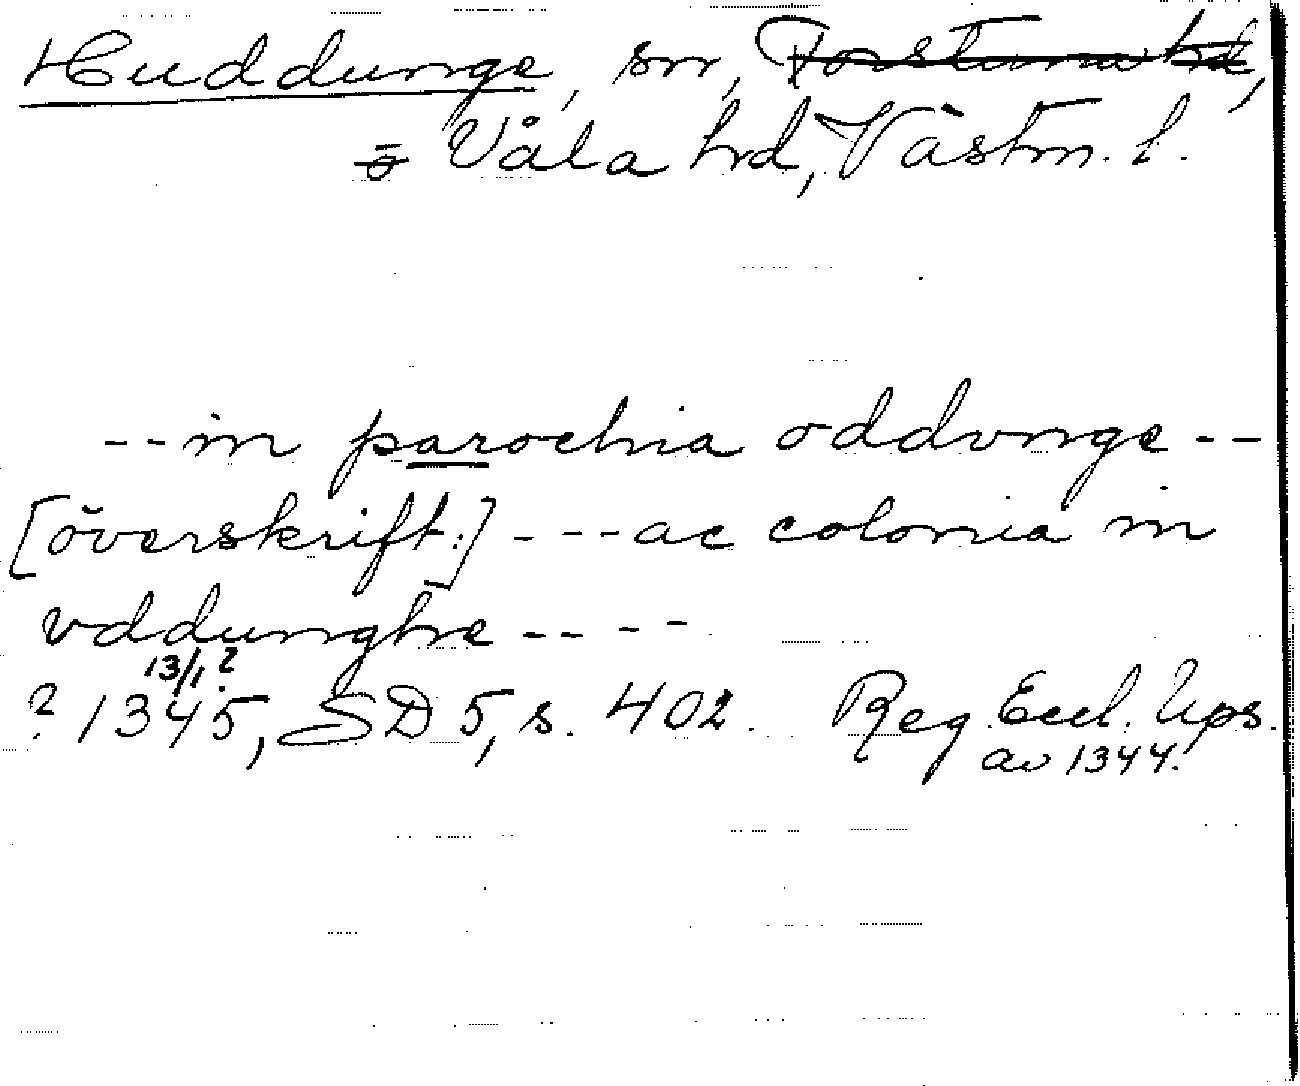 Huddunge, sn, Torstuna hd,
Våla hd, Västm. l.
-- in parochia oddvnge --
[överskrift:] - -- ac colonia in
vddunghe -- --
13/1?
? 1345, SD 5, s. 402. Reg. Eccl. Ups.
av 1344.